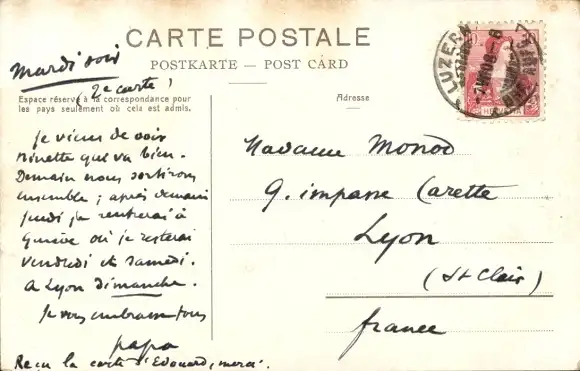 CARTE POSTALE
POSTKARTE — POST CÁRD
Mardi soir
(2e carte)
Espace réservé à la correspondance pour
les pays seulement où cela est admis.
Adresse
Je viens de voir
Ninette qui va bien.
Demain nous sortirons
ensemble ; après demain
jeudi je rentrerai à
Genève où je resterai
vendredi et samedi.
A Lyon dimanche.
Je vous embrasse tous
papa
Reçu la carte d'Edouard, merci.
Madame Monod
9. impasse Carette
Lyon
(St Clair)
france
LUZERN
HELVETIA